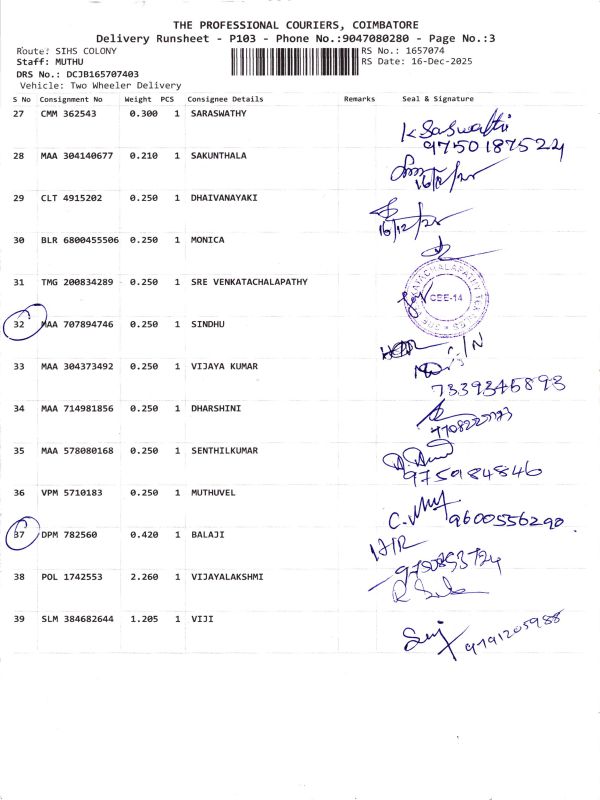 THE PROFESSIONAL COURIERS, COIMBATORE
Delivery Runsheet - P103 - Phone No.:9047080280 - Page No.:3
Route: SIHS COLONY RS No.: 1657074
Staff: MUTHU RS Date: 16-Dec-2025
DRS No.: DCJB165707403
Vehicle: Two Wheeler Delivery
S No Consignment No Weight PCS Consignee Details Remarks Seal & Signature
27 CMM 362543 0.300 1 SARASWATHY
K Saswathi
9750187524
28 MAA 304140677 0.210 1 SAKUNTHALA
16/12/25
29 CLT 4915202 0.250 1 DHAIVANAYAKI
16/12/25
30 BLR 6800455506 0.250 1 MONICA
31 TMG 200834289 0.250 1 SRE VENKATACHALAPATHY
CBE-14
32 MAA 707894746 0.250 1 SINDHU
33 MAA 304373492 0.250 1 VIJAYA KUMAR
7339345893
34 MAA 714981856 0.250 1 DHARSHINI
35 MAA 578080168 0.250 1 SENTHILKUMAR
9759184846
36 VPM 5710183 0.250 1 MUTHUVEL
9600556290
37 DPM 782560 0.420 1 BALAJI
9750853724
38 POL 1742553 2.260 1 VIJAYALAKSHMI
39 SLM 384682644 1.205 1 VIJI
9791205988